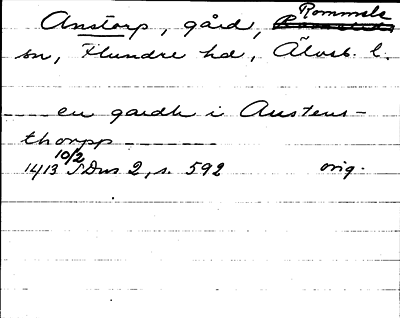 Anstorp, gård, Rommele
sn, Flundre hd, Älvsb. l.
---- en gardh i Austens-
thorpp --------
1413 10/2 SDns 2, s. 592 orig.